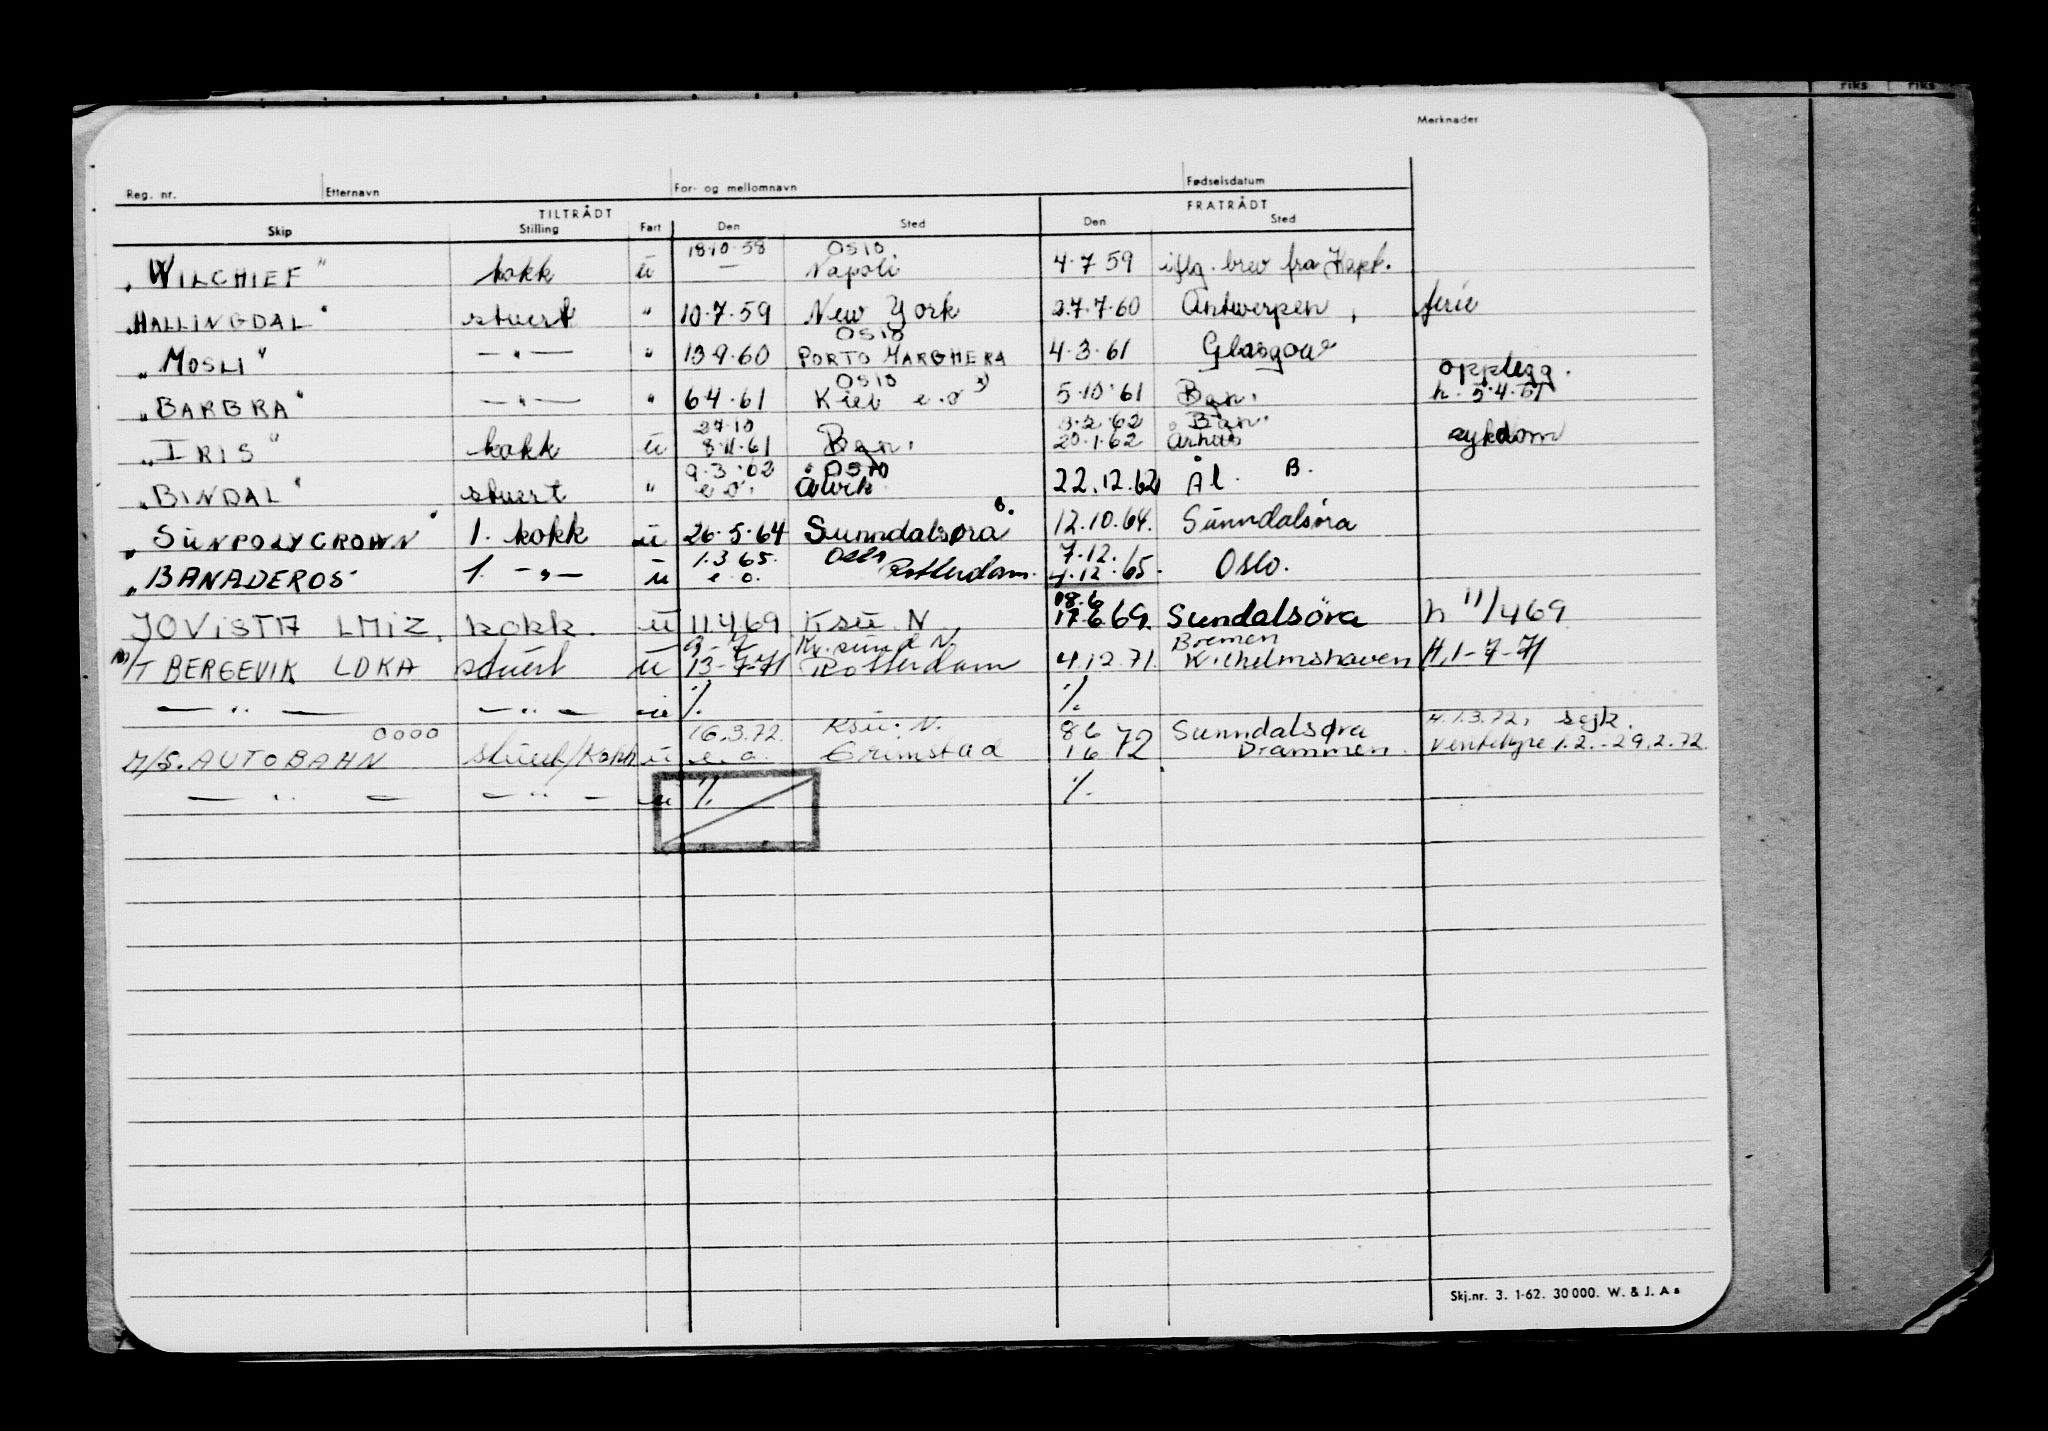 riks riks
Merknader
Reg. nr. Etternavn For- og mellomnavn Fødselsdatum
TILTRÅDT FRATRÅDT
Skip Stilling Fart Den Sted Den Sted
18.10.58 Oslo
"WILCHIEF" kokk u — Napoli 4.7.59 iflg. brev fra Kapt.
"HALLINGDAL" stuert " 10.7.59 New York 27.7.60 Antwerpen, ferie
Oslo
"MOSLI" —"— " 13.9.60 PORTO MARGHERA 4.3.61 Glasgow
Oslo opplegg.
"BARBRA" —"— " 6.4.61 Kiel e.o x) 5.10.61 Bgn. h. 5.4.61
27.10 3.2.62 Bgn.
"IRIS" kokk u 8.11.61 Bgn. 20.1.62 Århus sykdom
9.3.62 Oslo
"BINDAL" stuert " e.o. Ålvik 22.12.62 Ål. B.
"SUNPOLYCROWN" 1. kokk u 26.5.64 Sunndalsøra B. 12.10.64. Sunndalsøra
1.3.65. Oslo 7.12.
"BANADEROS" 1. —"— u e.o. Rotterdam. 4.12.65. Oslo.
18.6
JOVISTA LMIZ. kokk. u 11.4.69 Ksu. N 17.6.69. Sundalsøra h 11/4 69
9.7. Kr. sund N. Bremen
M/T BERGEVIK LDKA stuert u 13-7-71 Rotterdam 4.12.71. Wilhelmshaven H. 1-7-71
— " — — " — u %. %.
OOOO 16.3.72. Ksu. N. 8 6 Sunndalsøra H. 1.3.72, sejk.
M/S. AUTOBAHN stuert/kokk u e.o. Grimstad 1 6 72 Drammen. Ventehyre 1.2.-29.2.72.
— " — — " — u %. %.
Skj.nr. 3. 1-62. 30 000. W. & J. A s